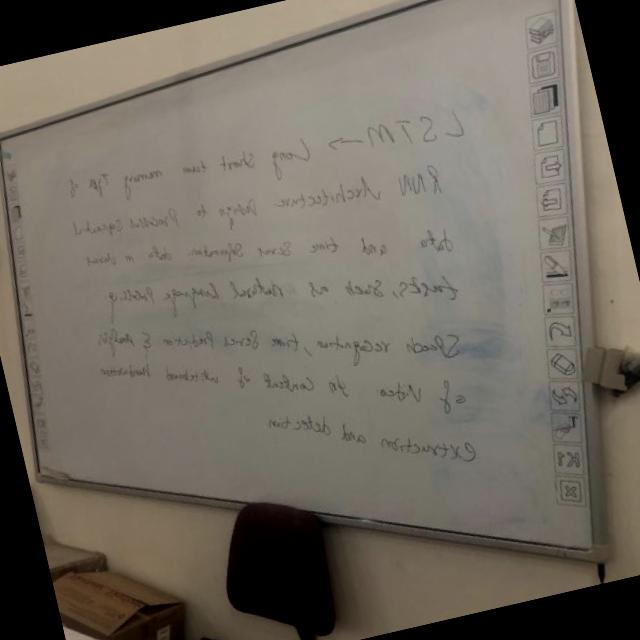 LSTM → Long Short term memory Type of
RNN Architecture Design to Process Sequential
data and time Series Information data in various
fields, Such as Natural Language Processing
Speech recognition, time Series Prediction & analysis
of Video in context of intrusion
Extraction and detection